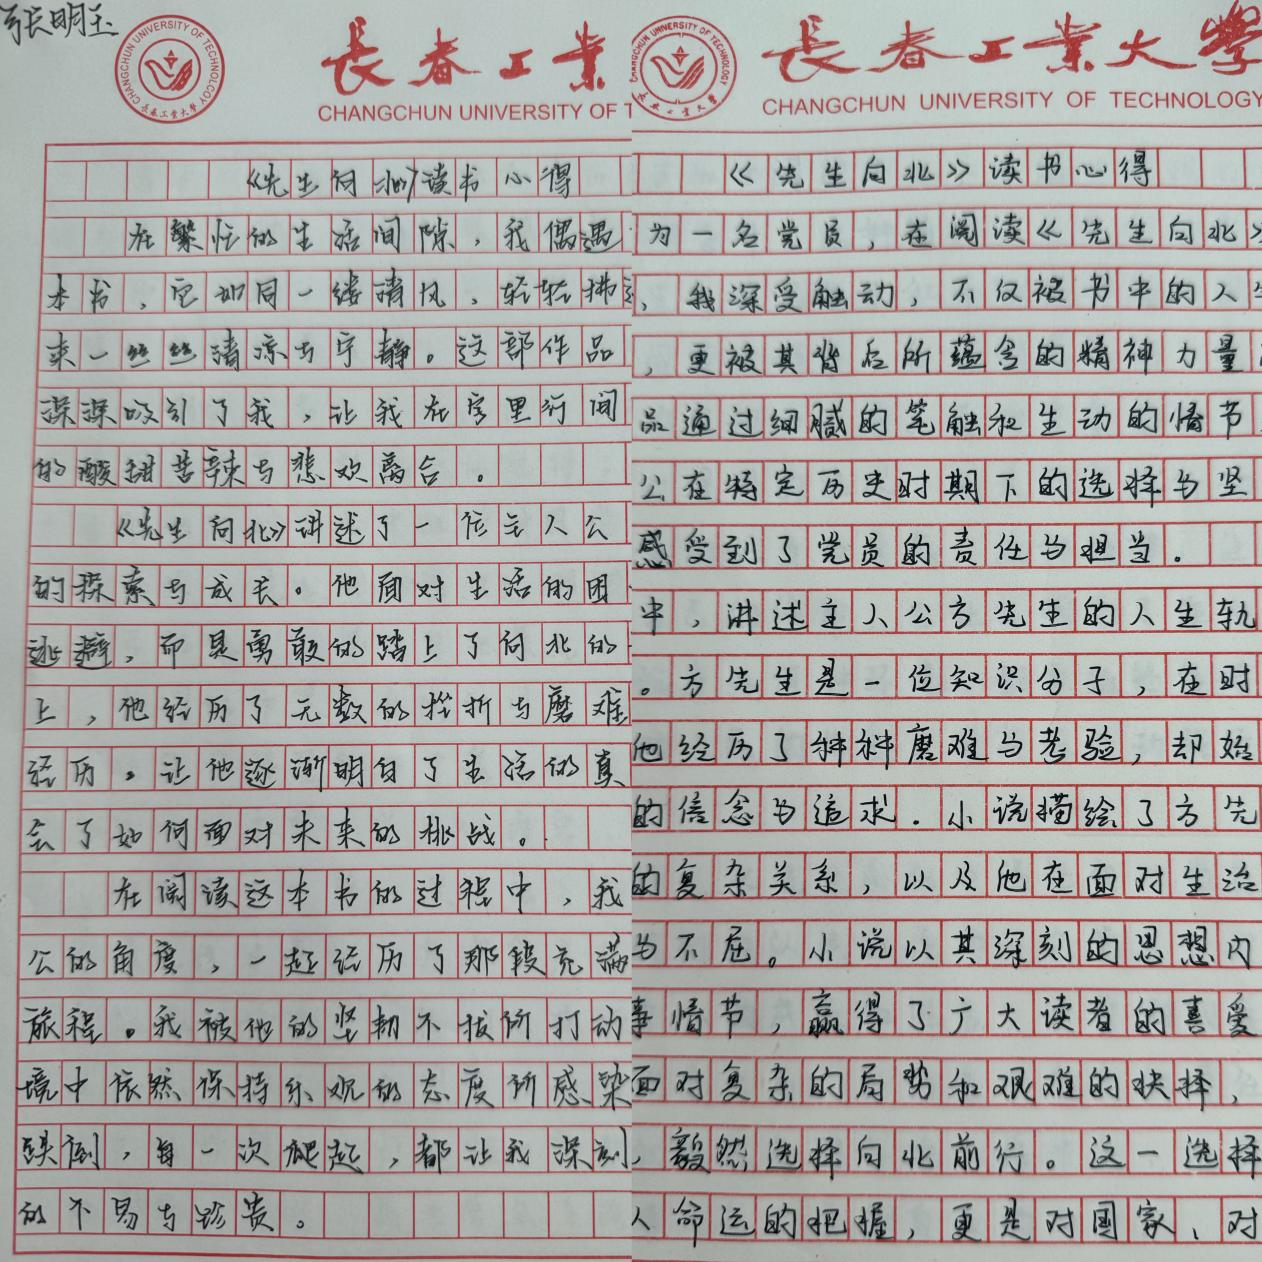 张明玉
CHANGCHUN UNIVERSITY OF TECHNOLOGY
长春工业大学
長春工業
CHANGCHUN UNIVERSITY OF T
《先生向北》读书心得
在繁忙的生活间隙，我偶遇
本书，它如同一缕清风，轻轻拂
来一丝丝清凉与宁静。这部作品
深深吸引了我，让我在字里行间
的酸甜苦辣与悲欢离合。
《先生向北》讲述了一位主人公
的探索与成长。他面对生活的困
逃避，而是勇敢的踏上了向北的
上，他经历了无数的挫折与磨难
经历，让他逐渐明白了生活的真
会了如何面对未来的挑战。
在阅读这本书的过程中，我
公的角度，一起经历了那段充满
旅程。我被他的坚韧不拔所打动
境中依然保持乐观的态度所感染
跌倒，每一次爬起，都让我深刻
的不易与珍贵。
CHANGCHUN UNIVERSITY OF TECHNOLOGY
长春工业大学
長春工業大學
CHANGCHUN UNIVERSITY OF TECHNOLOGY
《先生向北》读书心得
为一名党员，在阅读《先生向北》
，我深受触动，不仅被书中的人生
，更被其背后所蕴含的精神力量
品通过细腻的笔触和生动的情节
公在特定历史时期下的选择与坚
感受到了党员的责任与担当。
中，讲述主人公方先生的人生轨
。方先生是一位知识分子，在时
他经历了种种磨难与考验，却始
的信念与追求。小说描绘了方先
的复杂关系，以及他在面对生活
与不屈。小说以其深刻的思想内
事情节，赢得了广大读者的喜爱
面对复杂的局势和艰难的抉择，
，毅然选择向北前行。这一选择
人命运的把握，更是对国家、对